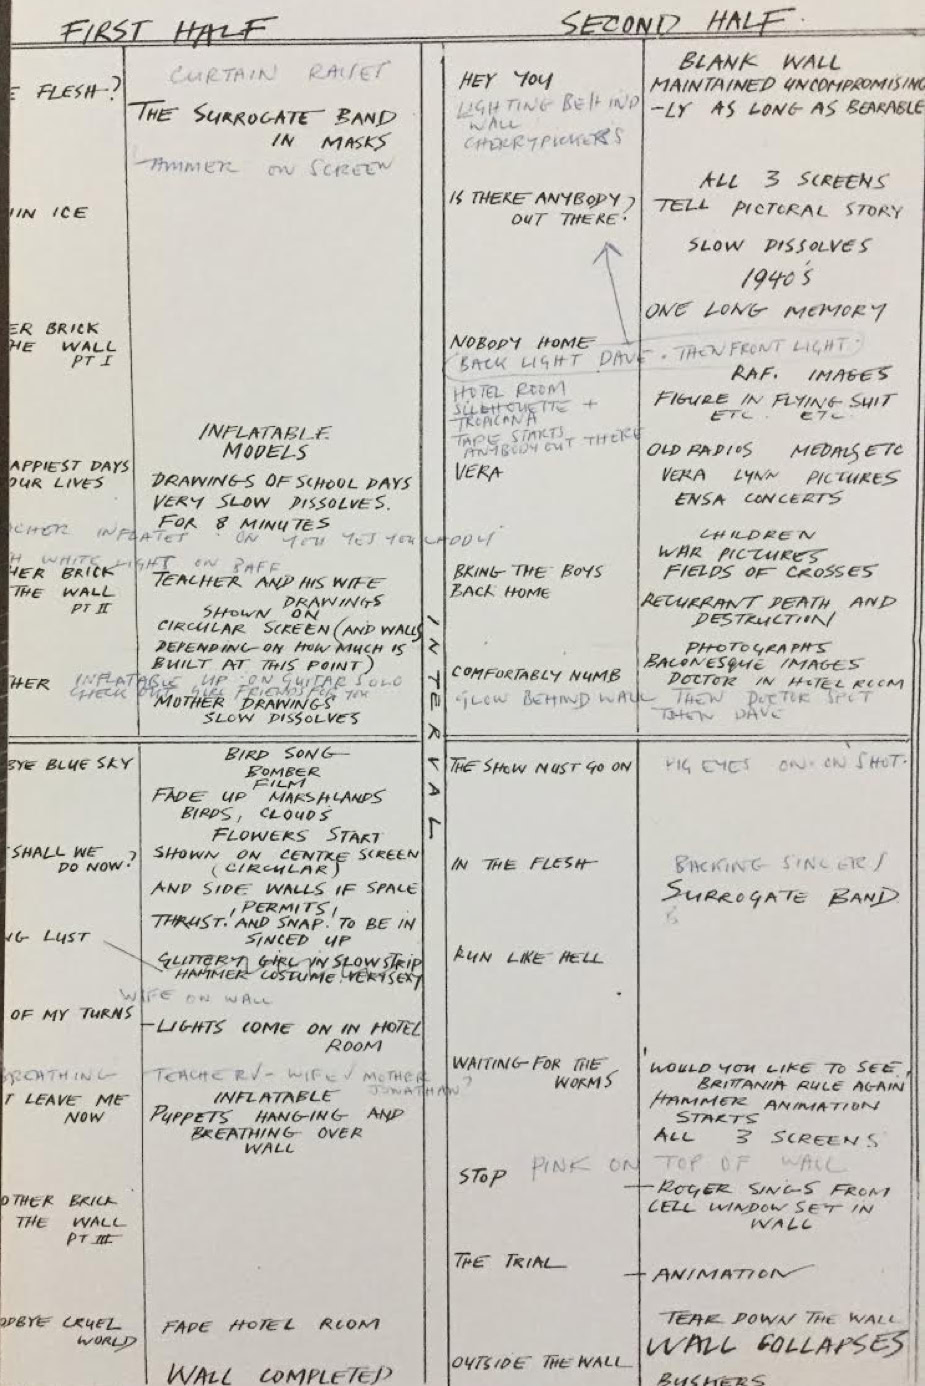 FIRST HALF
E FLESH?
CURTAIN RAISER
THE SURROGATE BAND
IN MASKS
HAMMER ON SCREEN
IN ICE
ER BRICK
HE WALL
PT I
INFLATABLE
MODELS
APPIEST DAYS
OUR LIVES
DRAWINGS OF SCHOOL DAYS
VERY SLOW DISSOLVES.
FOR 8 MINUTES
CHER INFLATES ON YOU YES YOU LADDY
WHITE LIGHT ON
HER BRICK
THE WALL
PT II
TEACHER AND HIS WIFE
DRAWINGS
SHOWN ON
CIRCULAR SCREEN (AND WALLS
DEPENDING ON HOW MUCH IS
BUILT AT THIS POINT)
HER
INFLATABLE UP ON GUITAR SOLO
CHECK OUT GIRL FRIENDS FOR YOU
MOTHER DRAWINGS
SLOW DISSOLVES
INTERVAL
BYE BLUE SKY
BIRD SONG
BOMBER
FILM
FADE UP MARSHLANDS
BIRDS, CLOUDS
FLOWERS START
SHALL WE
DO NOW?
SHOWN ON CENTRE SCREEN
(CIRCULAR)
AND SIDE WALLS IF SPACE
PERMITS,
THRUST! AND SNAP. TO BE IN
SINCED UP
NG LUST
GLITTERY GIRL IN SLOW STRIP
HAMMER COSTUME. VERY SEXY
WIFE ON WALL
OF MY TURNS
-LIGHTS COME ON IN HOTEL
ROOM
BREATHING
TEACHER √ - WIFE √ MOTHER
JONATHAN?
T LEAVE ME
NOW
INFLATABLE
PUPPETS HANGING AND
BREATHING OVER
WALL
OTHER BRICK
THE WALL
PT III
ODBYE CRUEL
WORLD
FADE HOTEL ROOM
WALL COMPLETED
SECOND HALF.
HEY YOU
LIGHTING BEHIND
WALL
CHERRYPICKERS
BLANK WALL
MAINTAINED UNCOMPROMISING
-LY AS LONG AS BEARABLE
IS THERE ANYBODY
OUT THERE?
ALL 3 SCREENS
TELL PICTORAL STORY
SLOW DISSOLVES
1940'S
ONE LONG MEMORY
NOBODY HOME
BACK LIGHT DAVE. THEN FRONT LIGHT.
HOTEL ROOM
SILLHOUETTE +
TROPICANA
TAPE STARTS
ANYBODY OUT THERE
RAF. IMAGES
FIGURE IN FLYING SUIT
ETC. ETC.
VERA
OLD RADIOS MEDALS ETC
VERA LYNN PICTURES
ENSA CONCERTS
BRING THE BOYS
BACK HOME
CHILDREN
WAR PICTURES
FIELDS OF CROSSES
RECURRANT DEATH AND
DESTRUCTION
COMFORTABLY NUMB
GLOW BEHIND WALL THEN DOCTOR SPOT
THEN DAVE
PHOTOGRAPHS
BACONESQUE IMAGES
DOCTOR IN HOTEL ROOM
THE SHOW MUST GO ON
PIG EYES ON. ON SHOT.
IN THE FLESH
BACKING SINGERS
SURROGATE BAND
RUN LIKE HELL
WAITING FOR THE
WORMS
'WOULD YOU LIKE TO SEE
BRITTANIA RULE AGAIN'
HAMMER ANIMATION
STARTS
ALL 3 SCREENS
STOP
PINK ON TOP OF WALL
-ROGER SINGS FROM
CELL WINDOW SET IN
WALL
THE TRIAL
-ANIMATION
TEAR DOWN THE WALL
WALL COLLAPSES
OUTSIDE THE WALL
BUSKERS